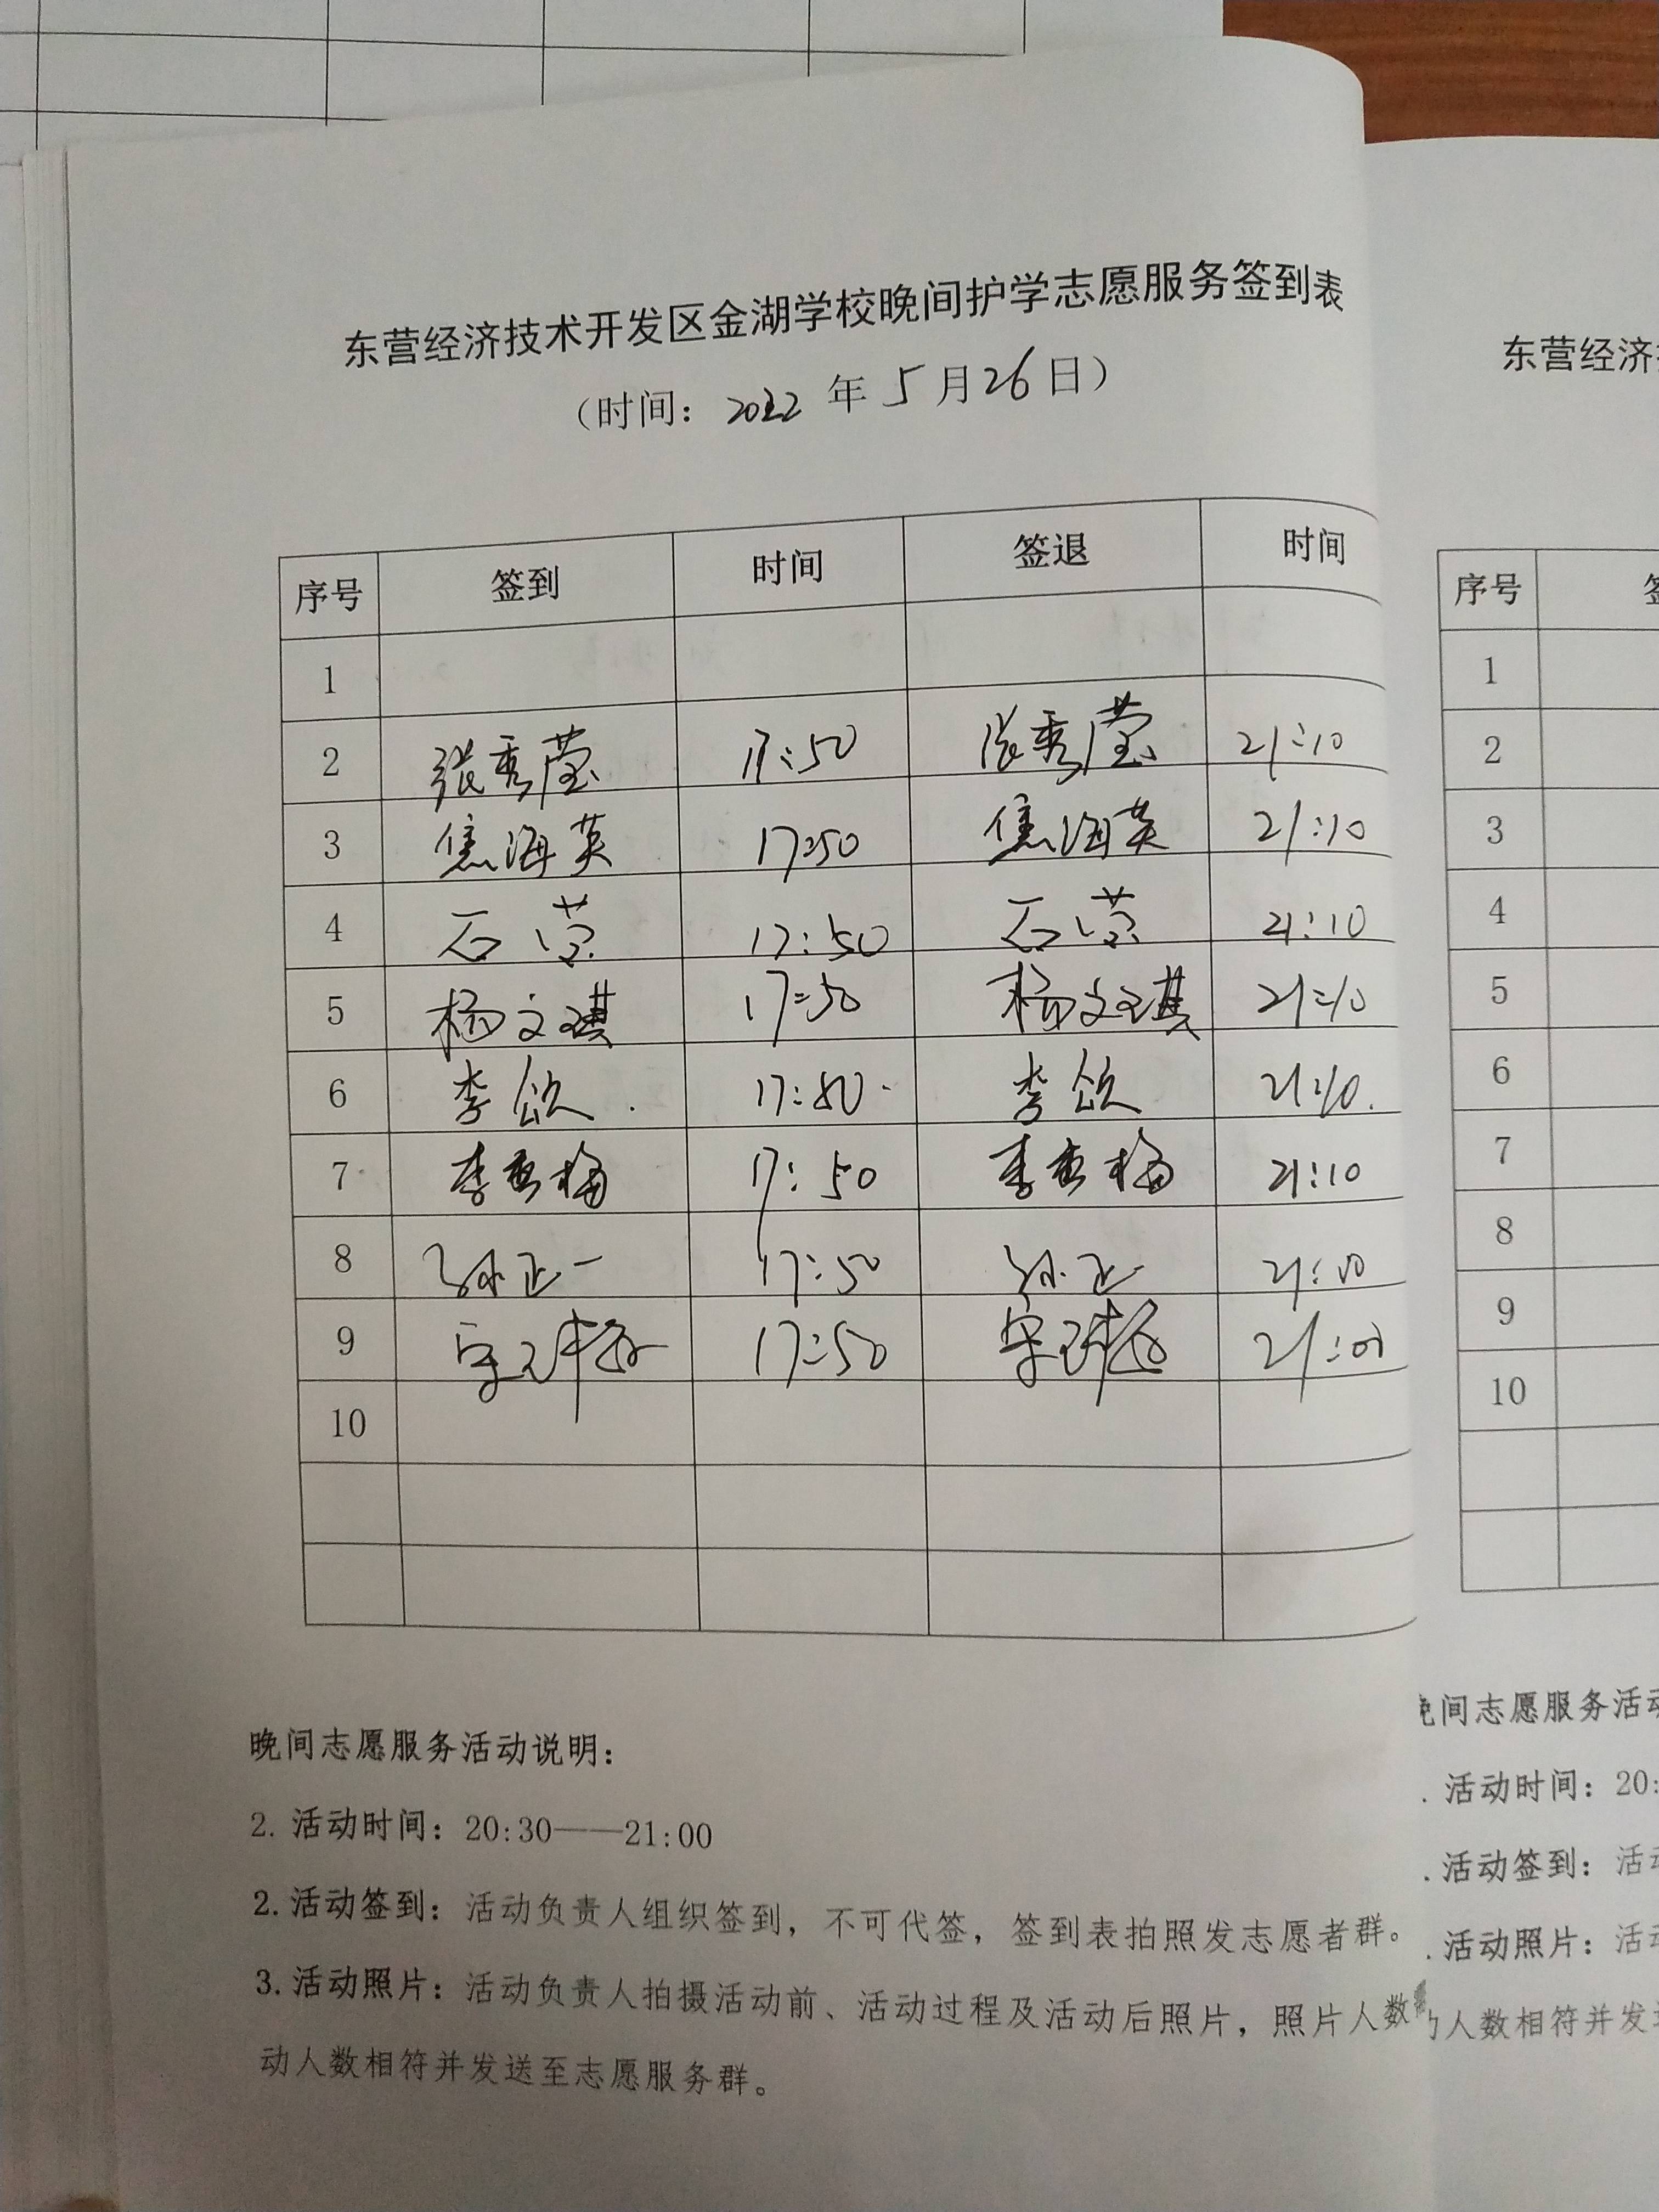 东营经济技术开发区金湖学校晚间护学志愿服务签到表
（时间：2022 年 5 月 26 日）
序号 签到 时间 签退 时间
1
2 张秀莹 17:50 张秀莹 21:10
3 焦海英 17:50 焦海英 21:10
4 石莹 17:50 石莹 21:10
5 杨文琪 17:50 杨文琪 21:10
6 李 17:50 李 21:10
7 李秀梅 17:50 李秀梅 21:10
8 孙正一 17:50 孙正一 21:10
9 宋 17:50 宋
10
晚间志愿服务活动说明：
2. 活动时间：20:30——21:00
2. 活动签到：活动负责人组织签到，不可代签，签到表拍照发志愿者群。
3. 活动照片：活动负责人拍摄活动前、活动过程及活动后照片，照片人数
动人数相符并发送至志愿服务群。
东营经济
序号
1
2
3
4
5
6
7
8
9
10
间志愿服务活
. 活动时间：20:
. 活动签到：活
. 活动照片：活
人数相符并发